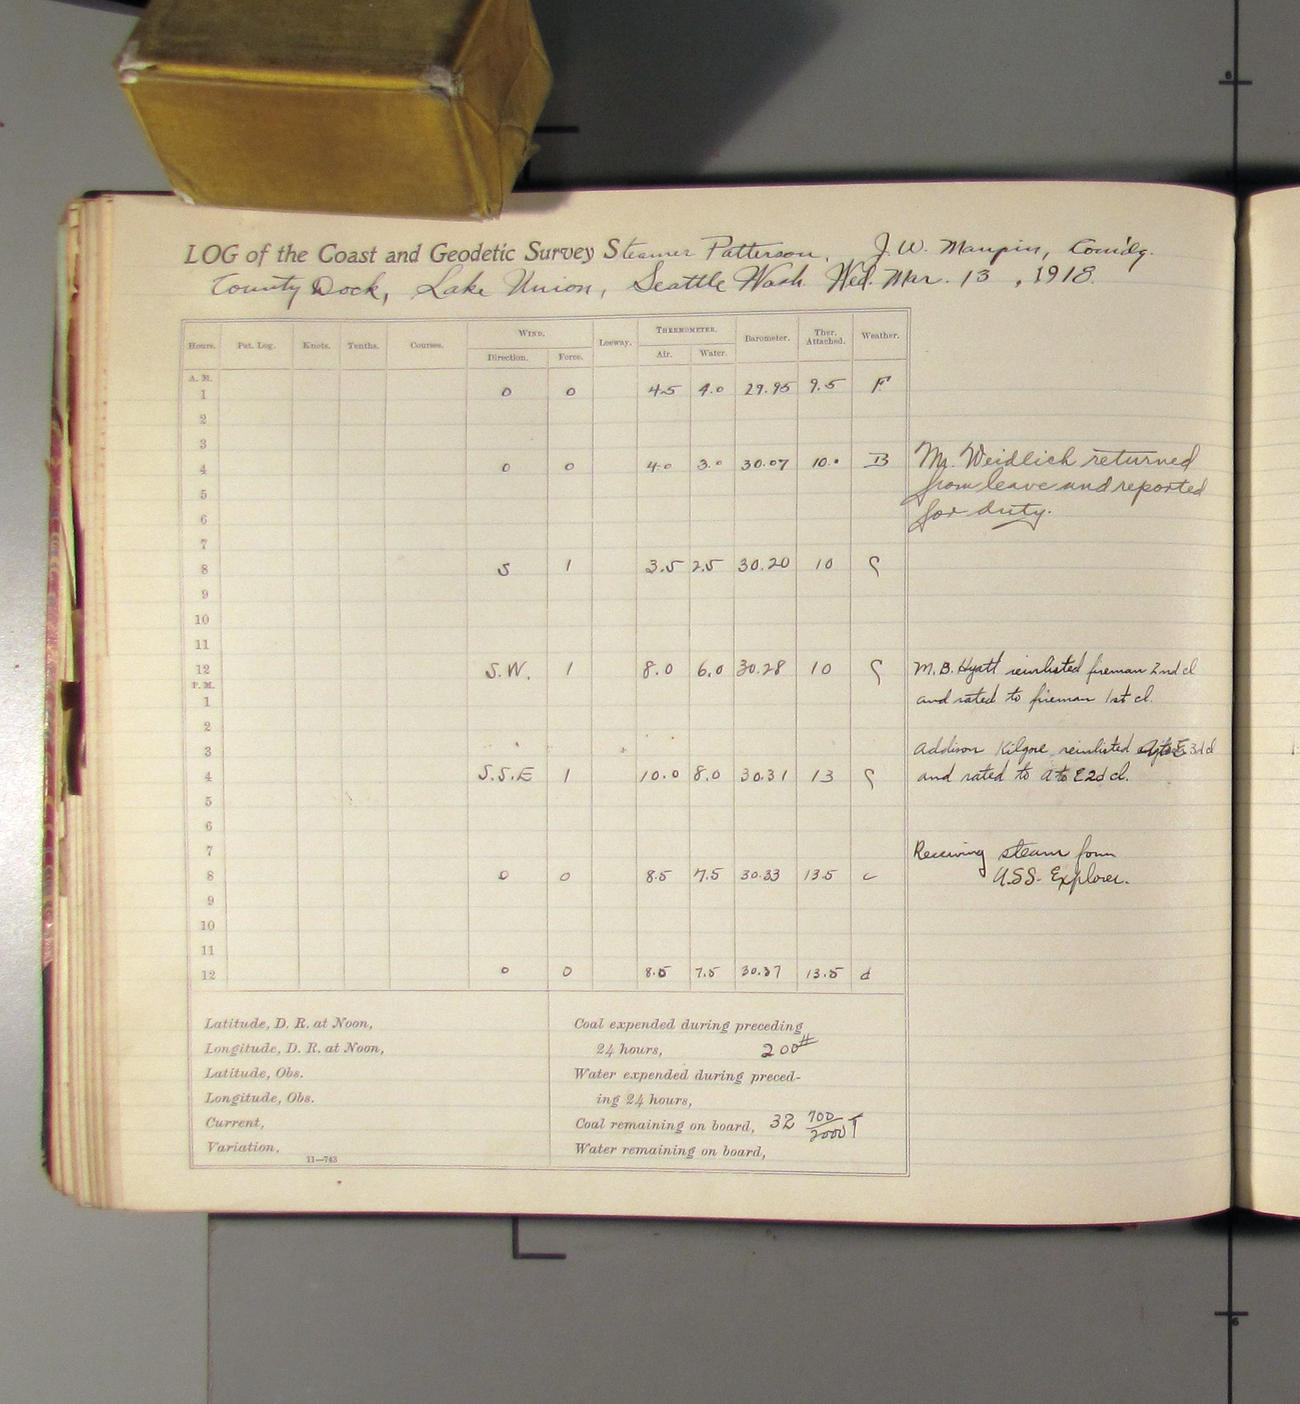 LOG of the Coast and Geodetic Survey Steamer Patterson, J. W. Maupin, Comdg.
County Dock, Lake Union, Seattle Wash. Wed. Mar. 13, 1918.
Hours. Pat. Log. Knots. Tenths. Courses. WIND. Leeway. THERMOMETER. Barometer. Ther. Attached. Weather.
Direction. Force. Air. Water.
A. M.
1 0 0 4.5 4.0 29.95 9.5 F
2
3
4 0 0 4.0 3.0 30.07 10.0 B
Mr. Weidlich returned
from leave and reported
for duty.
5
6
7
8 S 1 3.5 2.5 30.20 10 C
9
10
11
12 S.W. 1 8.0 6.0 30.28 10 C
M.B. Hyatt reinlisted fireman 2nd cl
P. M.
1 and rated to fireman 1st cl.
2
3 Addison Kilgore reinlisted 3d cl
4 S.S.E 1 10.0 8.0 30.31 13 C and rated to A to E 2d cl.
5
6
7 Receiving steam from
8 0 0 8.5 7.5 30.33 13.5 c U.S.S. Explorer.
9
10
11
12 0 0 8.5 7.5 30.37 13.5 d
Latitude, D. R. at Noon,
Longitude, D. R. at Noon,
Latitude, Obs.
Longitude, Obs.
Current,
Variation,
11—743
Coal expended during preceding
24 hours, 200#
Water expended during preced-
ing 24 hours,
Coal remaining on board, 32 700/2000 T
Water remaining on board,
6
6